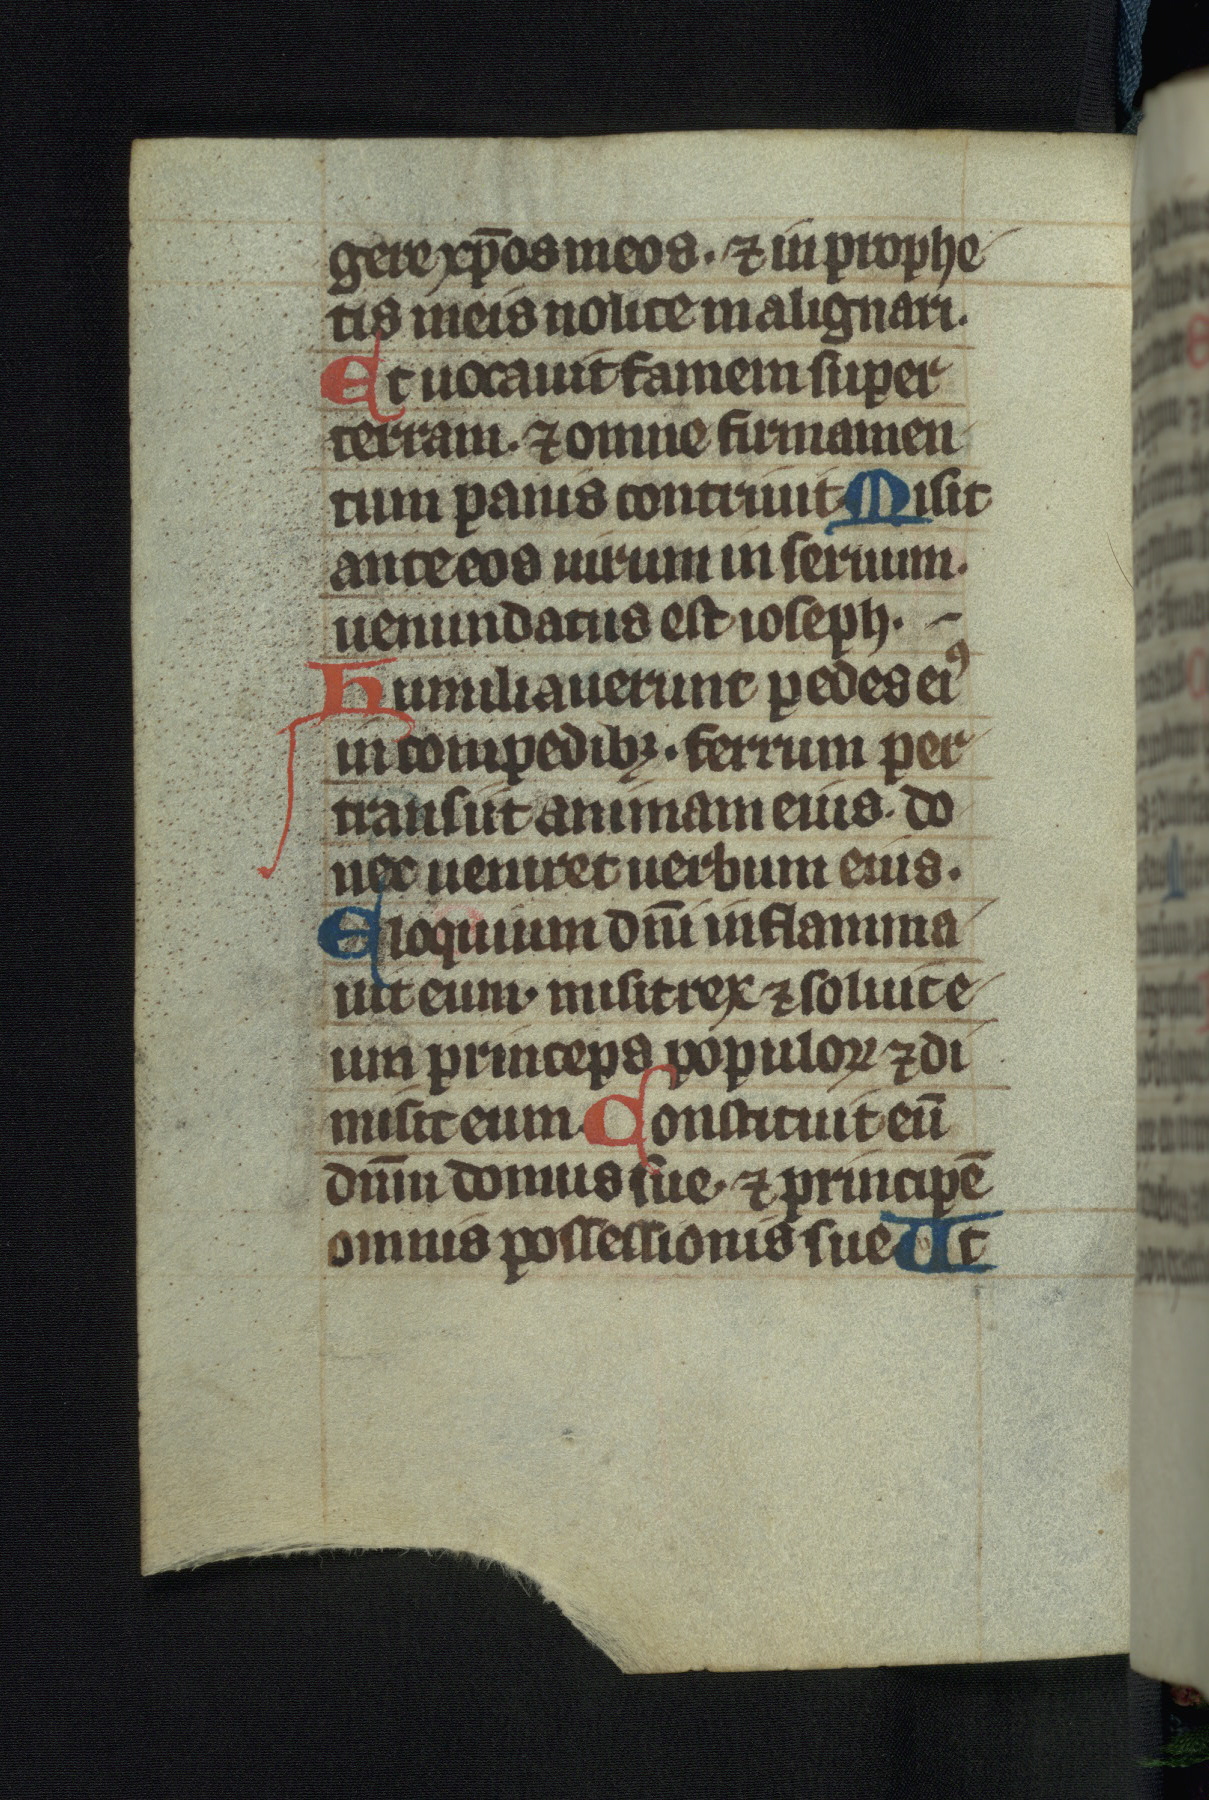 gere xp̄os meos. ⁊ in prophe
tis meis nolite malignari.
Et uocauit famem super
terram. ⁊ omne firmamen
tum panis contriuit Misit
ante eos uirum in seruum.
uenundatus est ioseph.
Humiliauerunt pedes eiꝰ
in compedibꝫ. ferrum per
transiit animam eius. do
nec ueniret uerbum eius.
Eloquium dn̄i inflamma
uit eum. misit rex ⁊ soluit e
um princeps populoꝝ ⁊ di
misit eum. Constituit eū
dn̄m domus sue. ⁊ principē
omnis possessionis sue Ut